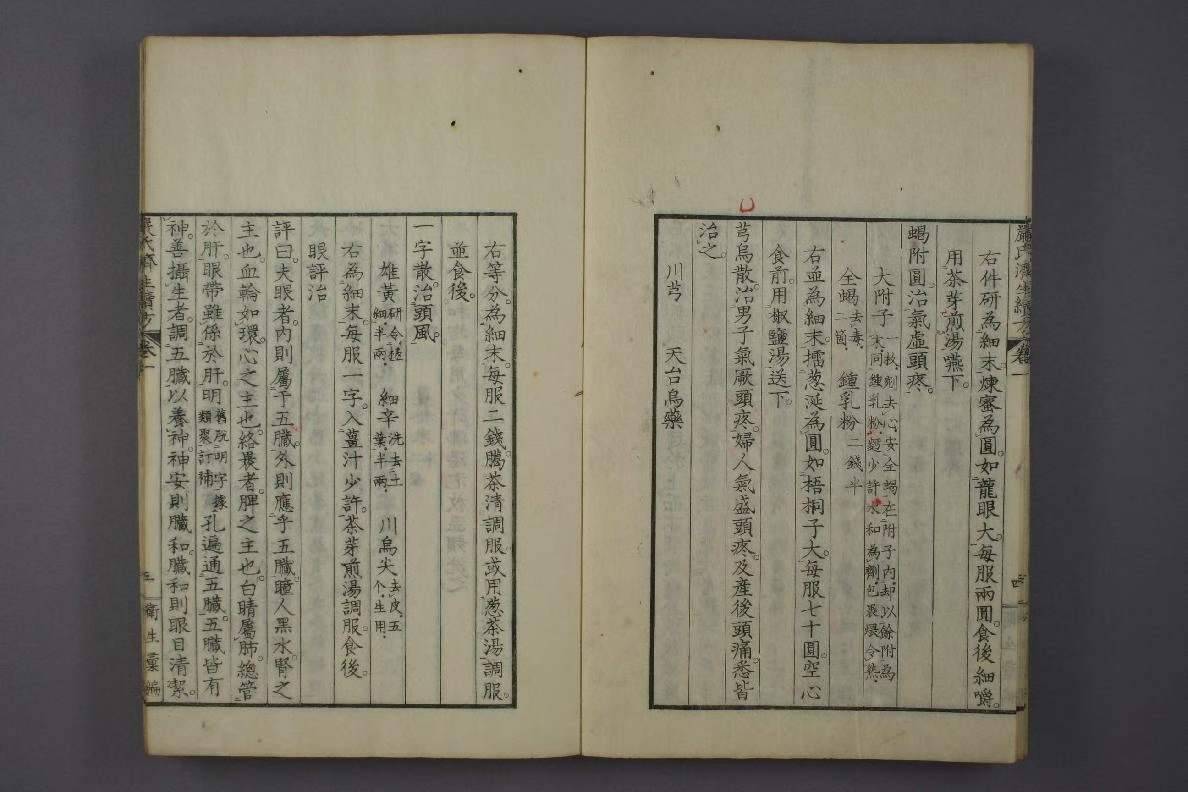 嚴氏濟生續方 卷一
右件研為細末。煉蜜為圓。如龍眼大。每服兩圓。食後細嚼。
用茶芽煎湯嚥下。
蝎附圓。治氣虛頭疼。
大附子一枚。剜去心安全蝎在附子內。却以餘附為末同鍾乳粉。麪少許水和為劑。包裹煨令熟。
全蝎去毒。二箇。 鍾乳粉二錢半
右並為細末。擂葱涎為圓。如梧桐子大。每服七十圓。空心
食前。用椒鹽湯送下。
芎烏散。治男子氣厥頭疼。婦人氣盛頭疼。及產後頭痛。悉皆
治之。
川芎 天台烏藥
右等分。為細末。每服二錢。臈茶清調服。或用葱茶湯調服。
並食後。
一字散。治頭風。
雄黃研令極細半兩。 細辛洗去土葉。半兩。 川烏尖去皮。五个。生用。
右為細末。每服一字。入薑汁少許。茶芽煎湯調服。食後。
眼評治
評曰。夫眼者。內則屬于五臟。外則應乎五臟。瞳人黑水。腎之
主也。血輪如環。心之主也。絡裹者。脾之主也。白睛屬肺。總管
於肝。眼帶雖係於肝。明舊脫明字據類聚訂補孔遍通五臟。五臟皆有
神。善攝生者。調五臟以養神。神安則臟和。臟和則眼目清潔。
嚴氏濟生續方 卷一 三 衛生彙編